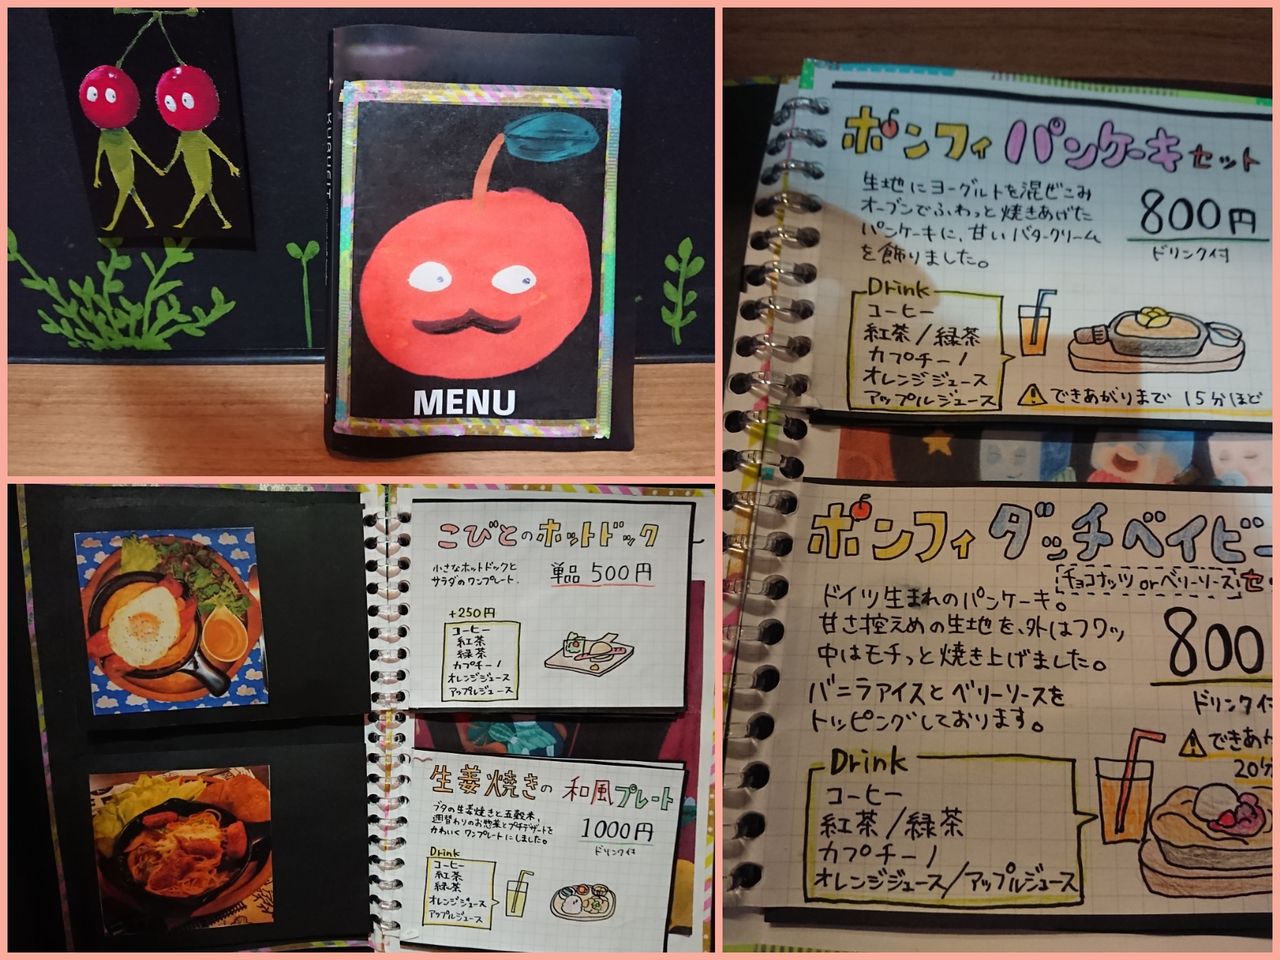 MENU
ポンフィ パンケーキセット
生地にヨーグルトを混ぜこみ
オーブンでふわっと焼きあげた
パンケーキに、甘いバタークリーム
を飾りました。
800円
ドリンク付
Drink
コーヒー
紅茶/緑茶
カプチーノ
オレンジジュース
アップルジュース
できあがりまで 15分ほど
ポンフィ ダッチベイビー
チョコナッツ orベリーソース セ
ドイツ生まれのパンケーキ。
甘さ控えめの生地を、外はフワッ
中はモチっと焼き上げました。
バニラアイスとベリーソースを
トッピングしております。
800
ドリンク付
できあが
20分
Drink
コーヒー
紅茶/緑茶
カプチーノ
オレンジジュース/アップルジュース
こびとのホットドック
小さなホットドックと
サラダのワンプレート.
単品 500円
+250円
コーヒー
紅茶
緑茶
カプチーノ
オレンジジュース
アップルジュース
生姜焼きの 和風プレート
ブタの生姜焼きと五穀米、
週替わりのお惣菜とプチデザートを
かわいくワンプレートにしました。
1000円
ドリンク付
Drink
コーヒー
紅茶
緑茶
オレンジジュース
アップルジュース